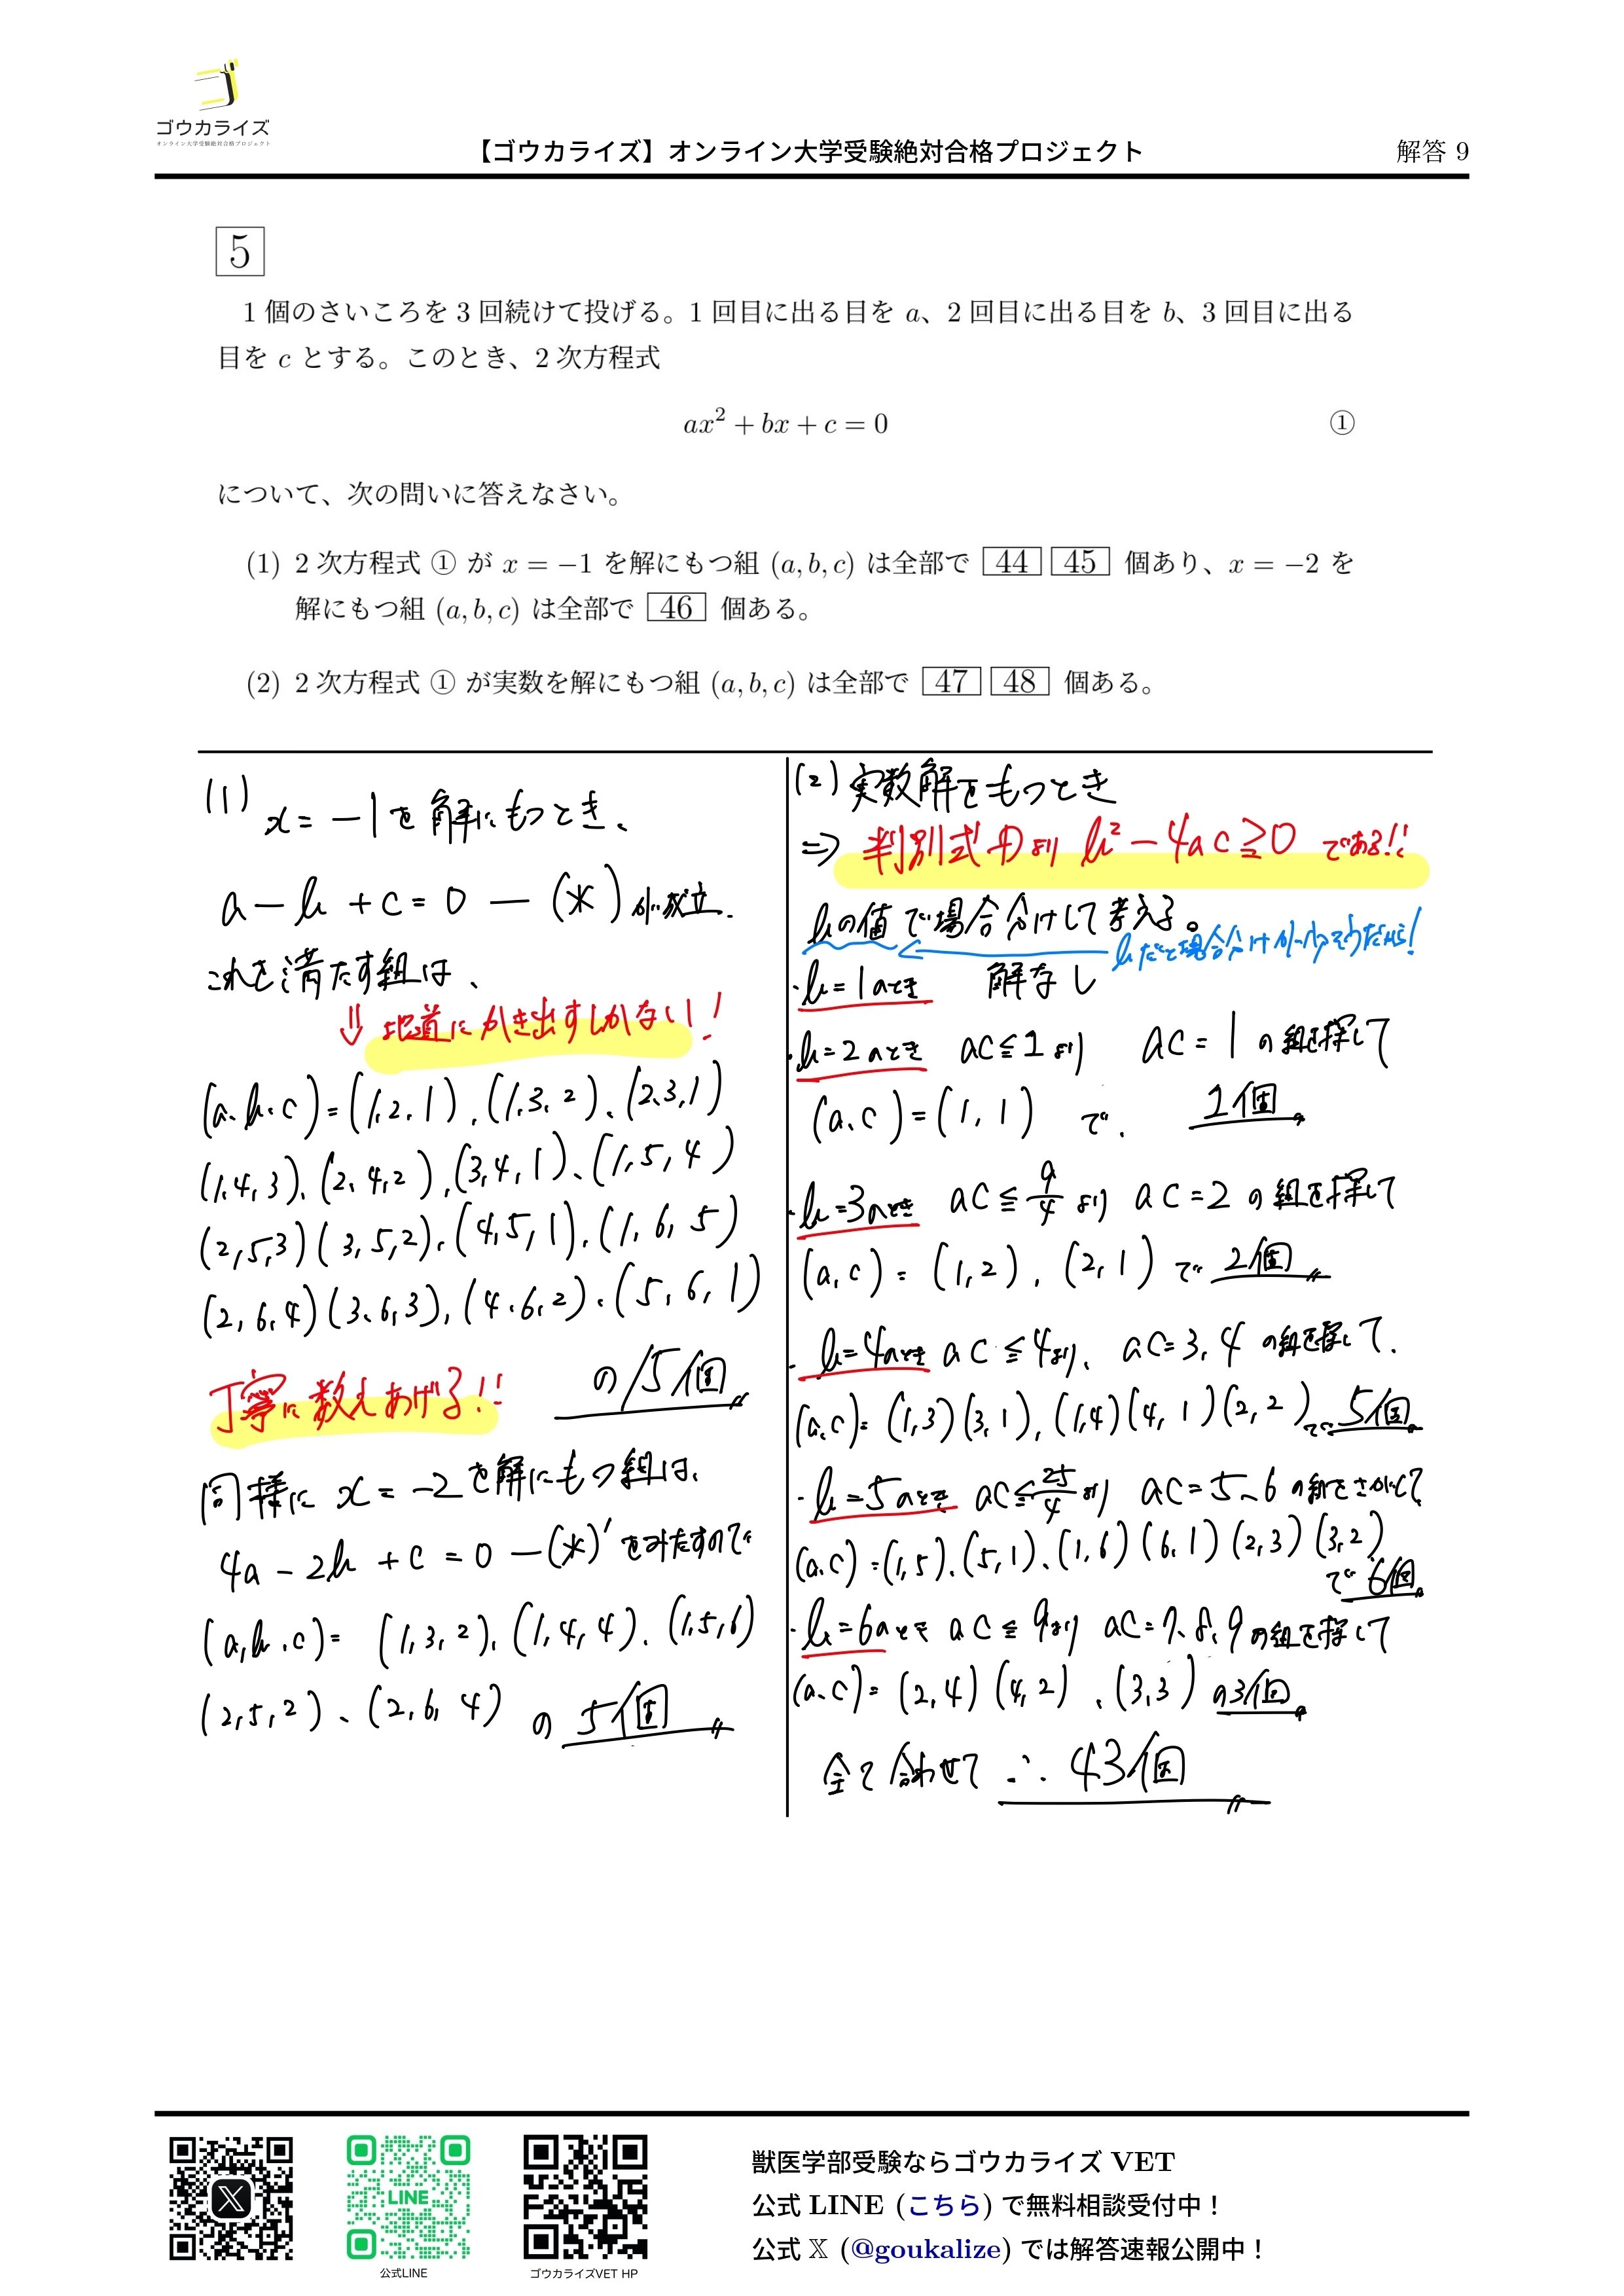 ゴウカライズ
オンライン大学受験絶対合格プロジェクト
【ゴウカライズ】オンライン大学受験絶対合格プロジェクト
解答 9
5
1 個のさいころを 3 回続けて投げる。1 回目に出る目を a、2 回目に出る目を b、3 回目に出る
目を c とする。このとき、2 次方程式
ax² + bx + c = 0 ①
について、次の問いに答えなさい。
(1) 2 次方程式 ① が x = −1 を解にもつ組 (a, b, c) は全部で 44 45 個あり、x = −2 を
解にもつ組 (a, b, c) は全部で 46 個ある。
(2) 2 次方程式 ① が実数を解にもつ組 (a, b, c) は全部で 47 48 個ある。
(1) x = −1 を解にもつとき、
a − b + c = 0 − (*) が成立.
これを満たす組は、
⇓ 地道にかき出すしかない!
(a、b、c) = (1, 2, 1), (1, 3, 2)、(2, 3, 1)
(1, 4, 3)、(2, 4, 2), (3, 4, 1)、(1, 5, 4)
(2, 5, 3) (3, 5, 2)、(4, 5, 1)、(1, 6, 5)
(2, 6, 4) (3, 6, 3), (4, 6, 2)、(5, 6, 1)
の 15個
丁寧に数えあげる!!
同様に x = −2 を解にもつ組は、
4a − 2b + c = 0 − (*)' をみたすので
(a, b, c) = (1, 3, 2)、(1, 4, 4)、(1, 5, 6)
(2, 5, 2)、(2, 6, 4) の 5個
(2) 実数解をもつとき
⇒ 判別式 D より b² − 4ac ≧ 0 である!!
bの値 で場合分けして考える。
bだと場合分けがしやすそうだから!
・b = 1のとき 解なし
・b = 2のとき ac ≦ 1 より ac = 1 の組を探して
(a、c) = (1, 1) で、 1個
・b = 3のとき ac ≦ 9/4 より ac = 2 の組を探して
(a, c) = (1, 2), (2, 1) で 2個
・b = 4のとき ac ≦ 4より、 ac = 3, 4 の組を探して、
(a, c) = (1, 3) (3, 1), (1, 4) (4, 1) (2, 2) で 5個
・b = 5のとき ac ≦ 25/4 より ac = 5、6 の組をさがして
(a, c) = (1, 5)、(5, 1)、(1, 6) (6, 1) (2, 3) (3, 2)
で 6個
・b = 6のとき ac ≦ 9より ac = 7、8、9 の組を探して
(a、c) = (2, 4) (4, 2)、(3, 3) の3個
全て合わせて ∴ 43個
LINE
公式LINE
ゴウカライズVET HP
獣医学部受験ならゴウカライズ VET
公式 LINE (こちら) で無料相談受付中！
公式 𝕏 (@goukalize) では解答速報公開中！